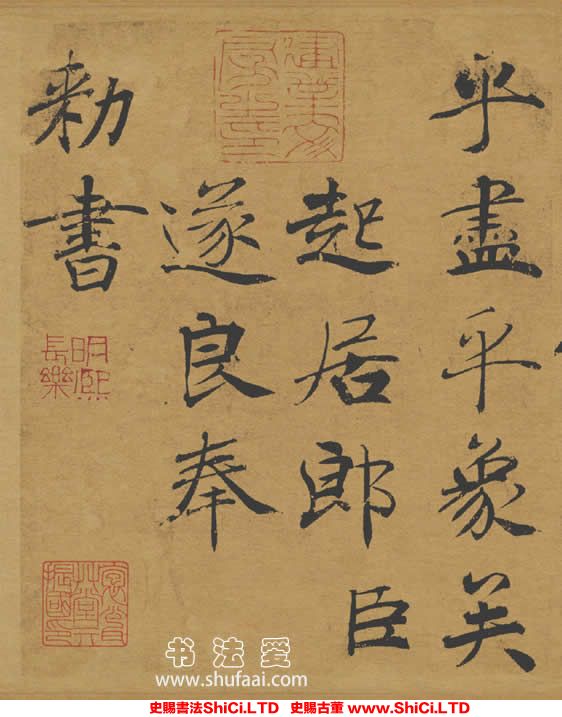 乎盡乎象矣
起居郎臣
遂良奉
勑書
建業文房之印
书法爱
www.shufaai.com
史賜書法ShiCi.LTD 史賜古董 www.ShiCi.LTD